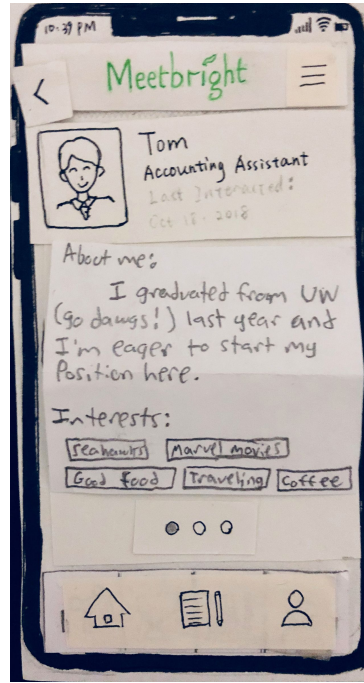 10:39 PM
Meetbright
Tom
Accounting Assistant
Last Interacted:
Oct 18, 2018
About me:
I graduated from UW
(go dawgs!) last year and
I'm eager to start my
Position here.
Interests:
Seahawks Marvel movies
Good food Traveling Coffee